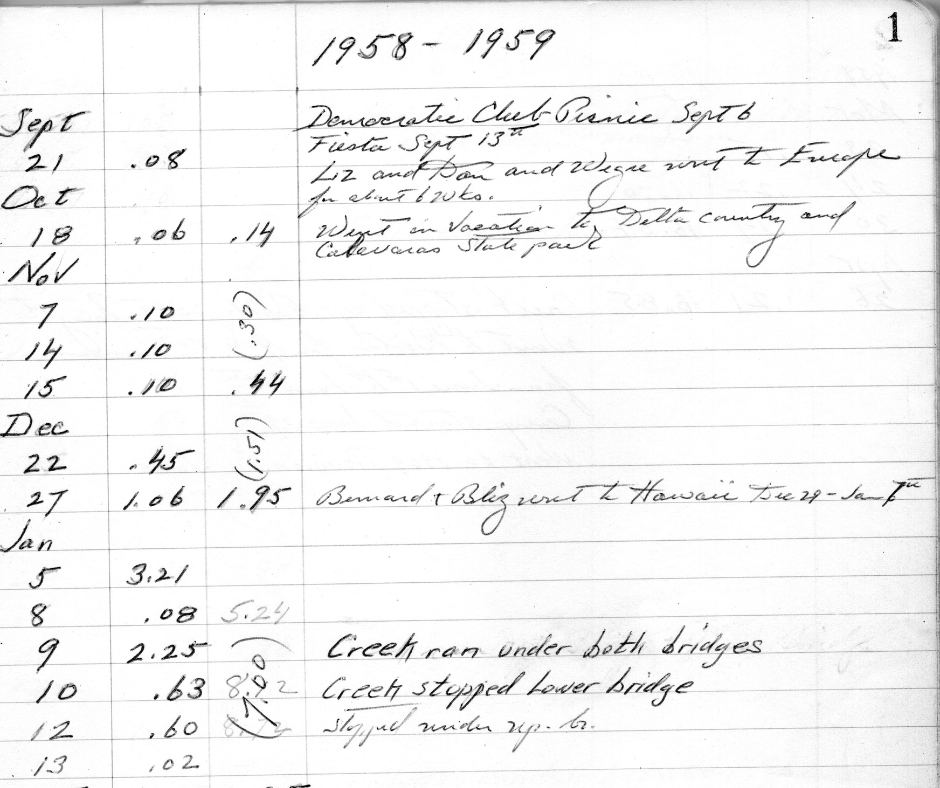 1
1958 - 1959
Sept Democratic Club Picnic Sept 6
Fiesta Sept 13th
21 .08 Liz and Don and went to Europe
Oct for about 6 wks.
18 .06 .14 Went on Vacation to Delta country and
Calavaras State park
Nov
7 .10
(.30)
14 .10
15 .10 .44
Dec
22 .45 (1.51)
27 1.06 1.95 Bernard + went to Hawaii Dec 29 - Jan 7th
Jan
5 3.21
8 .08 5.24
9 2.25 Creek ran under both bridges
(7.00)
10 .63 Creek stopped Lower bridge
12 .60 Stopped under up. br.
13 .02